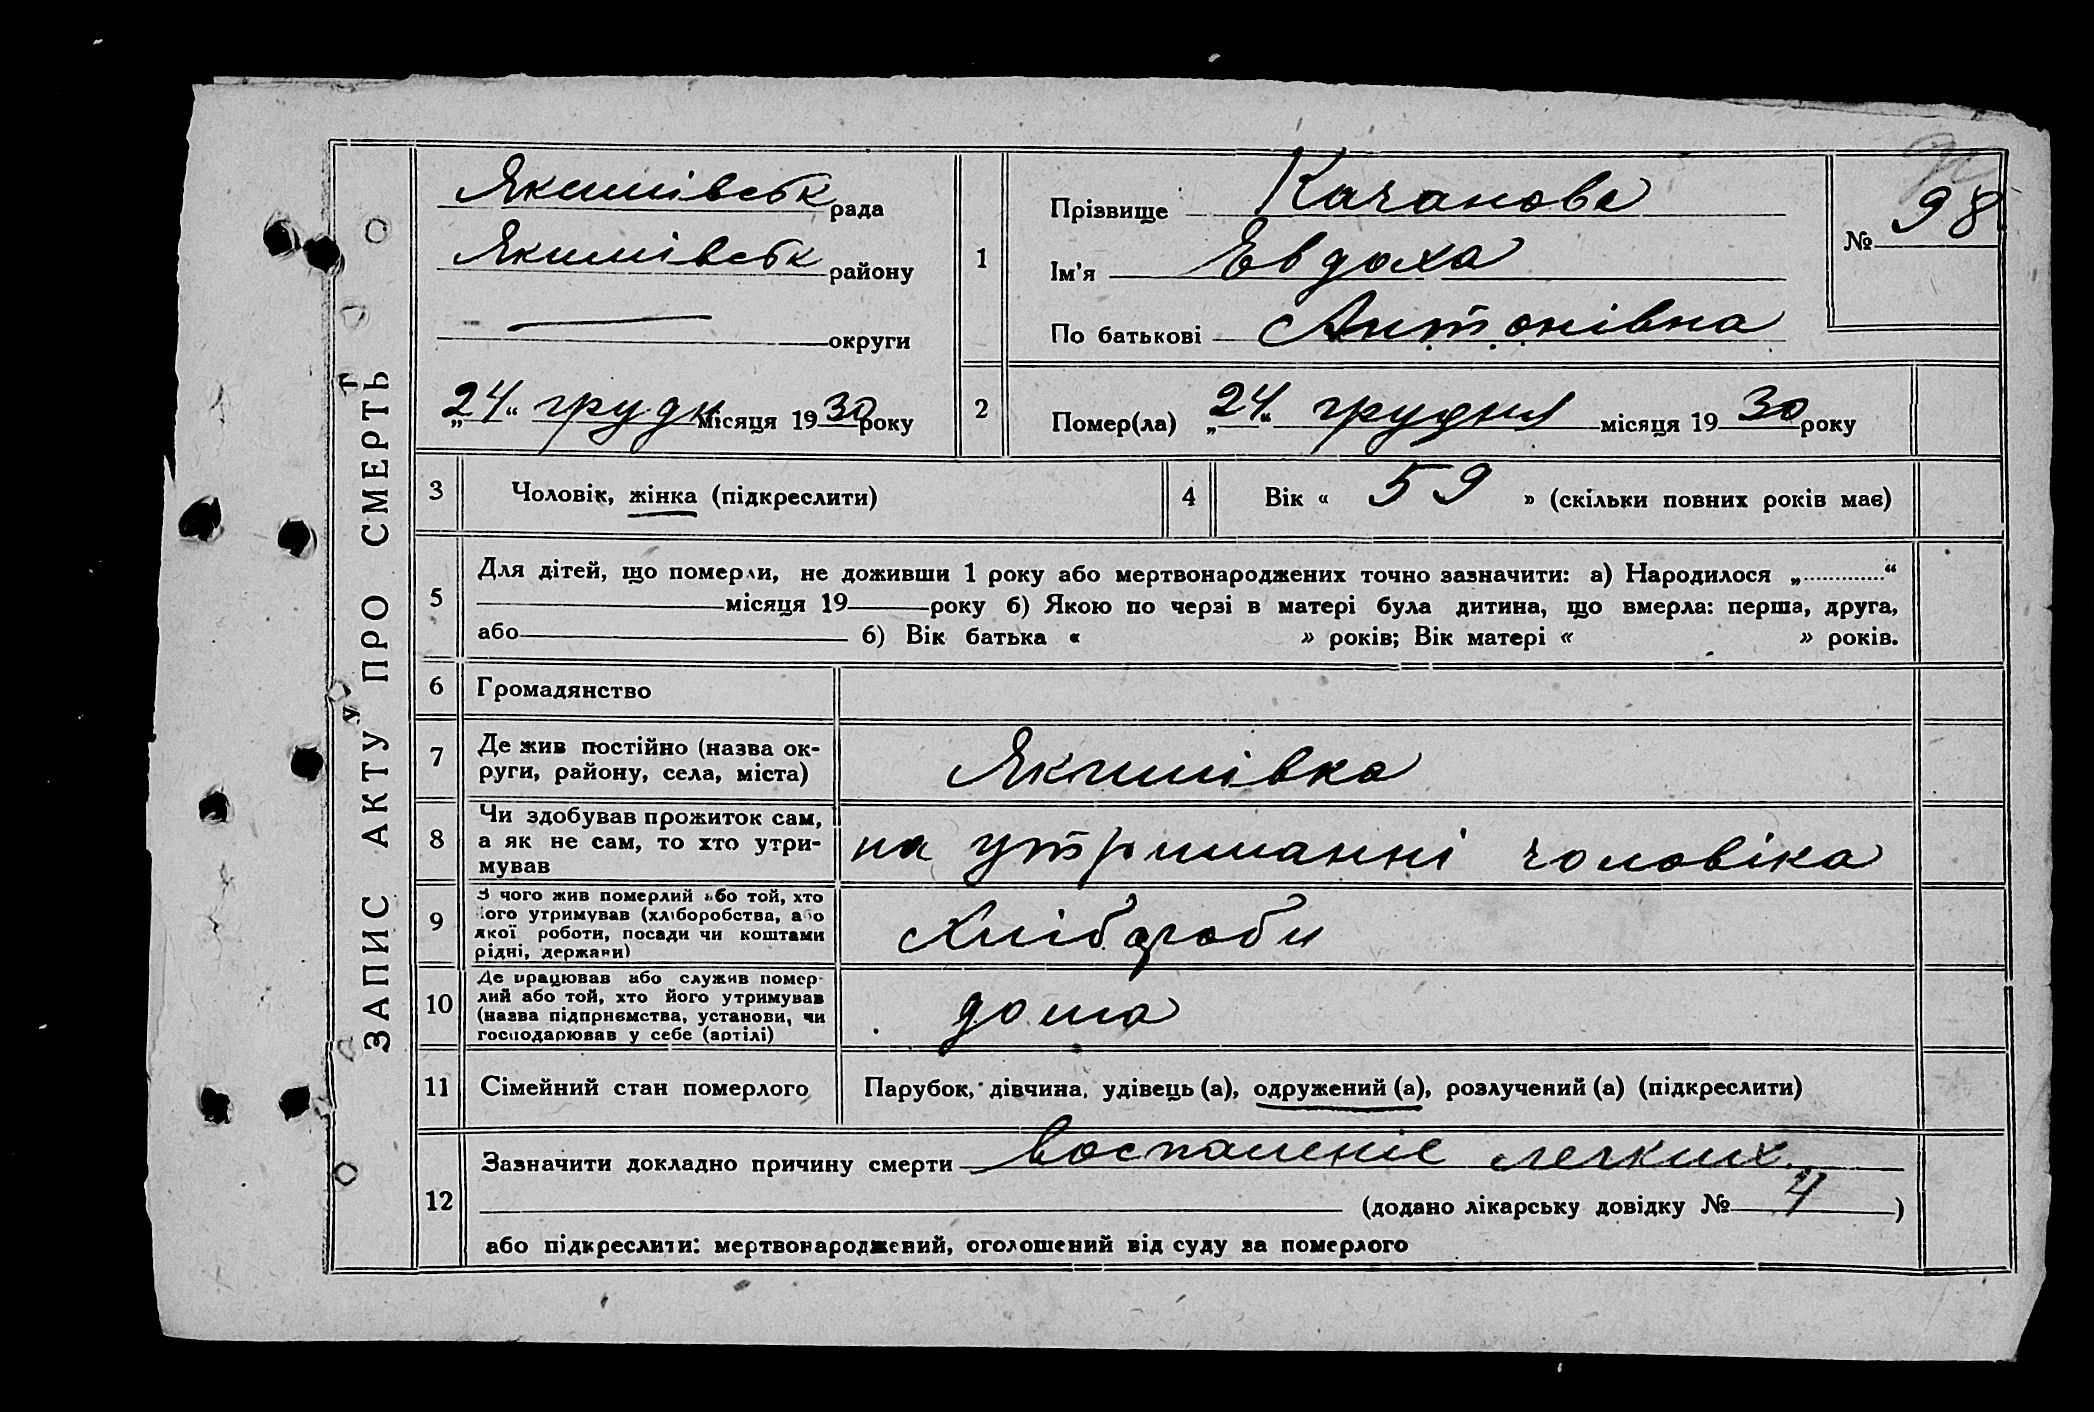 ЗАПИС АКТУ ПРО СМЕРТЬ
Якимівськ рада
Якимівськ району
округи
„24“ грудн місяця 1930 року
1
Прізвище Качанова
Ім'я Евдоха
По батькові Антонівна
№ 98
2
Помер(ла) „24“ грудня місяця 1930 року
3 Чоловік, жінка (підкреслити)
4 Вік « 59 » (скільки повних років має)
5
Для дітей, що померли, не доживши 1 року або мертвонароджених точно зазначити: а) Народилося „ “
місяця 19 року б) Якою по черзі в матері була дитина, що вмерла: перша, друга,
або б) Вік батька « » років; Вік матері « » років.
6 Громадянство
7
Де жив постійно (назва ок-
руги, району, села, міста)
Якимівка
8
Чи здобував прожиток сам,
а як не сам, то хто утри-
мував
на утриманні чоловіка
9
З чого жив померлий або той, хто
його утримував (хліборобства, або
якої роботи, посади чи коштами
рідні, держави)
Хлібороби
10
Де працював або служив помер-
лий або той, хто його утримував
(назва підприємства, установи, чи
господарював у себе (артілі)
дома
11 Сімейний стан померлого
Парубок, дівчина, удівець (а), одружений (а), розлучений (а) (підкреслити)
12
Зазначити докладно причину смерти воспаленіе легких.
(додано лікарську довідку № 4 )
або підкреслити: мертвонароджений, оголошений від суду за померлого